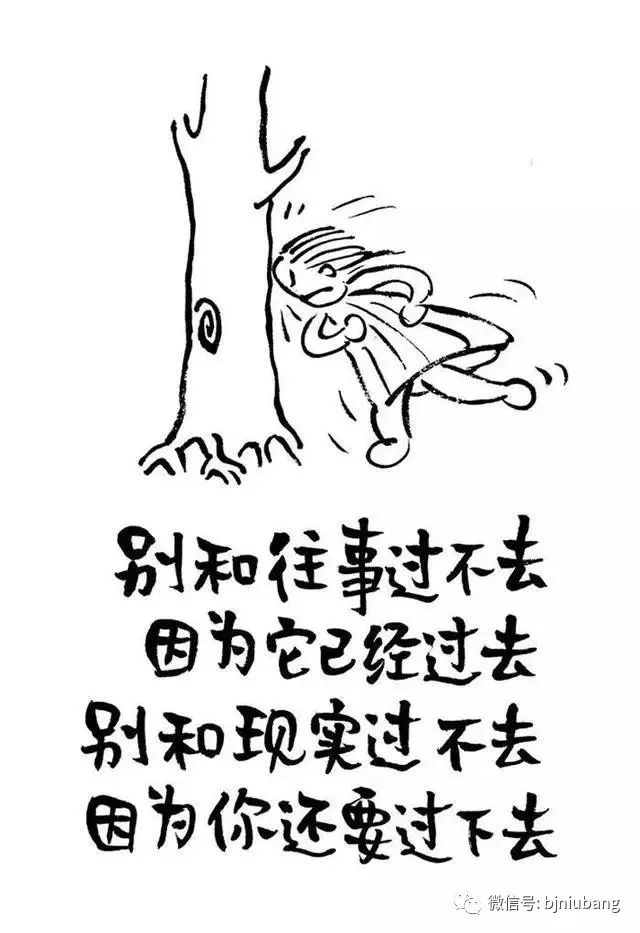 别和往事过不去
因为它已经过去
别和现实过不去
因为你还要过下去
微信号: bjniubang